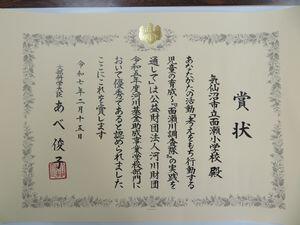 賞状
気仙沼市立面瀬小学校 殿
あなたがたの活動「考えをもち行動する
児童の育成」~面瀬川調査隊~の実践を
通して」は公益財団法人河川財団
令和五年度河川基金助成事業学校部門に
おいて優秀であると認められました
ここにこれを賞します
令和七年二月十五日
文部科学大臣 あべ俊子